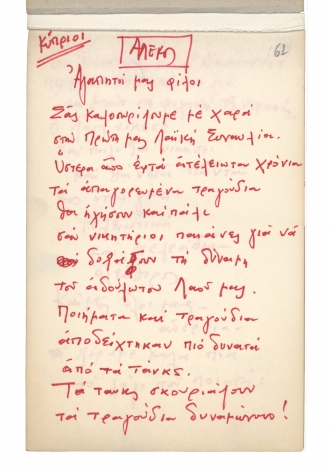 ΚΥΠΡΙΟΙ
ΑΛΕΚΟΣ
61
Ἀγαπητοί μας φίλοι
Σᾶς καλοσωρίζουμε μέ χαρά
στήν Πρώτη μας Λαϊκή Συναυλία.
Ὕστερα ἀπό ἑφτά ἀτέλειωτα χρόνια
τά ἀπαγορευμένα τραγούδια
θά ἠχήσουν καί πάλι
σάν νικητήριοι παιάνες γιά νά
δοξάσουν τή δύναμη
τοῦ ἀδούλωτου Λαοῦ μας.
Ποιήματα καί τραγούδια
ἀποδείχτηκαν πιό δυνατά
ἀπό τά τάνκς.
Τά τανκς σκουριάζουν
τά τραγούδια δυναμώνουν!